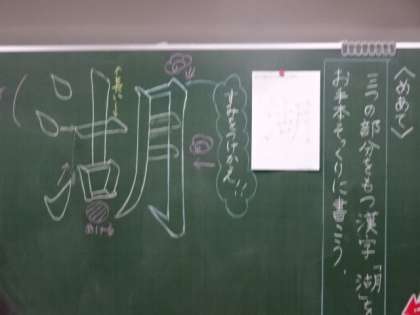 〈めあて〉
三つの部分をもつ漢字「湖」を
お手本そっくりに書こう。
すみをつけかえ!!
湖
あける